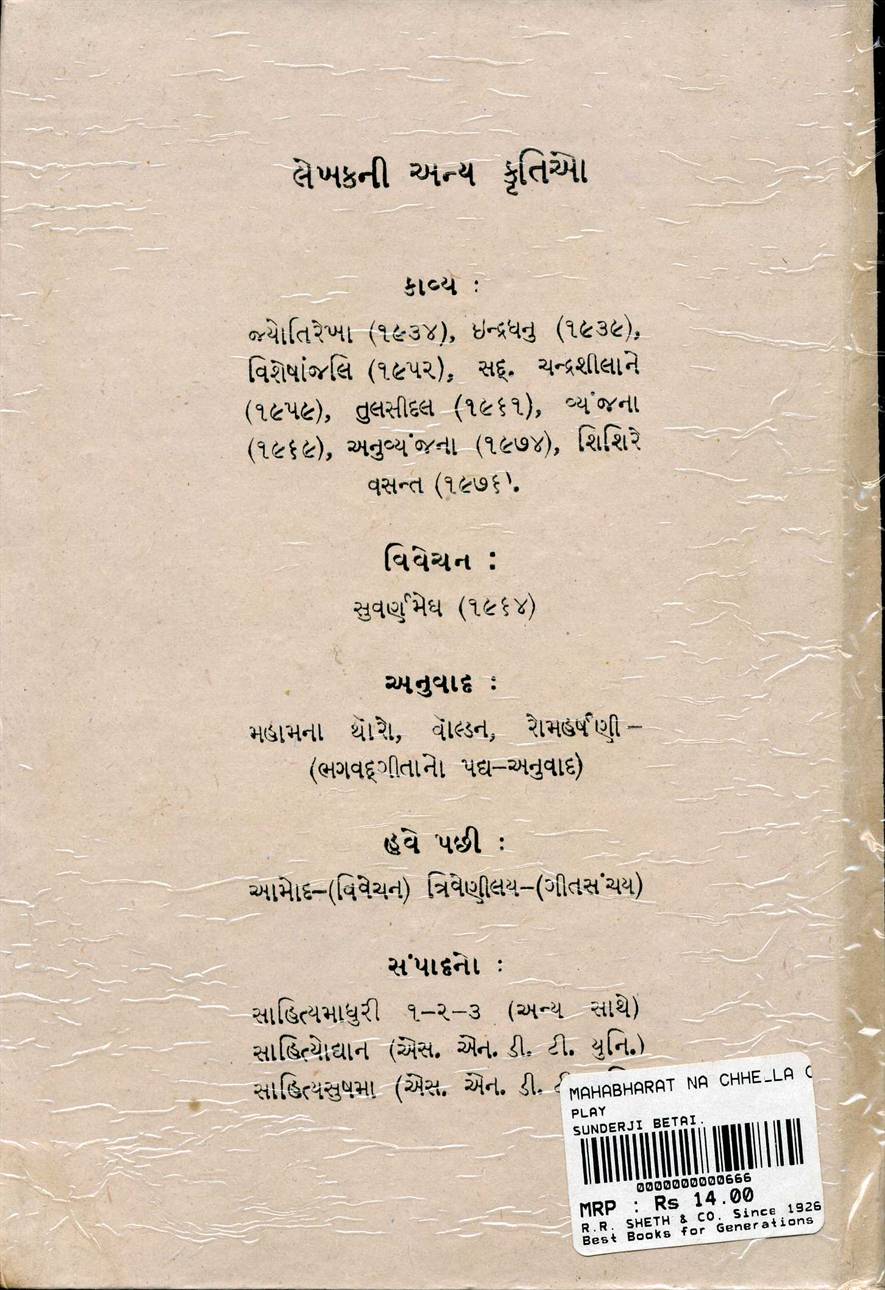 લેખકની અન્ય કૃતિઓ
કાવ્ય :
જ્યોતિરેખા (૧૯૩૪), ઇન્દ્રધનુ (૧૯૩૯),
વિશેષાંજલિ (૧૯૫૨), સદ્. ચન્દ્રશીલાને
(૧૯૫૯), તુલસીદલ (૧૯૬૧), વ્યંજના
(૧૯૬૯), અનુવ્યંજના (૧૯૭૪), શિશિરે
વસન્ત (૧૯૭૬).
વિવેચન :
સુવર્ણમેઘ (૧૯૬૪)
અનુવાદ :
મહામના થૉરો, વૉલ્ડન, રોમહર્ષણી –
(ભગવદ્ગીતાનો પદ્ય–અનુવાદ)
હવે પછી :
આમોદ–(વિવેચન) ત્રિવેણીલય–(ગીતસંચય)
સંપાદનો :
સાહિત્યમાધુરી ૧–૨–૩ (અન્ય સાથે)
સાહિત્યોદ્યાન (એસ. એન. ડી. ટી. યુનિ.)
સાહિત્યસુષમા (એસ. એન. ડી.
MAHABHARAT NA CHHELLA
PLAY
SUNDERJI BETAI.
0000000000666
MRP : Rs 14.00
R.R. SHETH & CO. Since 1926
Best Books for Generations